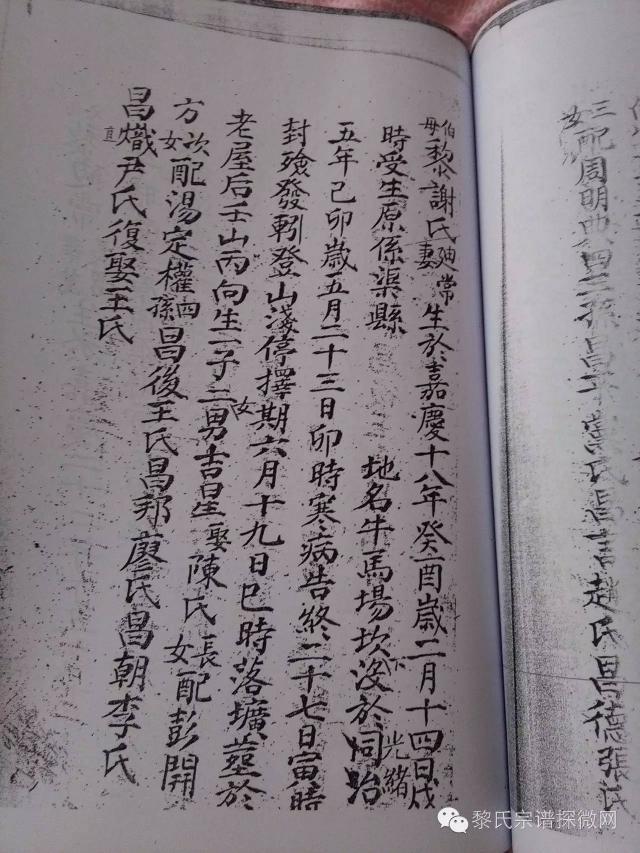 三女配周明典四三孫昌平黨氏昌言趙氏昌德張氏
伯母黎謝氏廸常妻生於嘉慶十八年癸酉歲二月十四日戌
時受生原係渠縣 地名牛馬場坎下沒於同治光緒
五年己卯歲五月二十三日卯時寒病告終二十七日寅時
封殮發軔登山淺停擇期六月十九日巳時落壙塟於
老屋后壬山丙向生一子三女男吉星娶陳氏長女配彭開
方次女配湯定權四孫昌後王氏昌邦廖氏昌朝李氏
昌熾尹氏復娶王氏
黎氏宗谱探微网